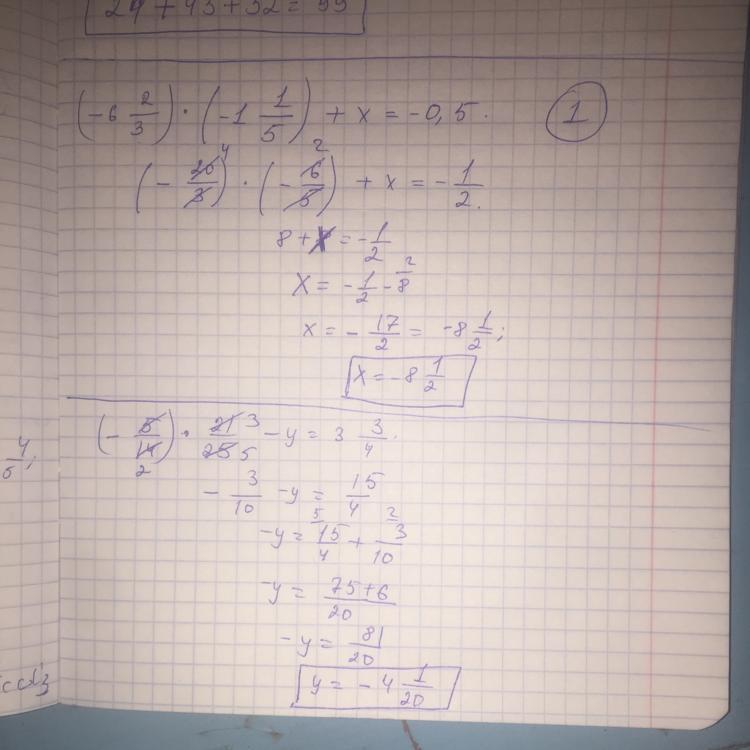 24 + 43 + 32 = 99
(-6 2/3) · (-1 1/5) + x = -0,5. 1
(- 20/3) 4 · (- 6/5) 2 + x = - 1/2.
8 + x = - 1/2
X = - 1/2 - 8 2
x = - 17/2 = -8 1/2;
X = -8 1/2
(- 5/14) 2 · 21/25 3 5 - y = 3 3/4.
- 3/10 - y = 15/4
-y = 15/4 5 + 3/10 2
-y = 75+6/20
-y = 81/20
y = - 4 1/20